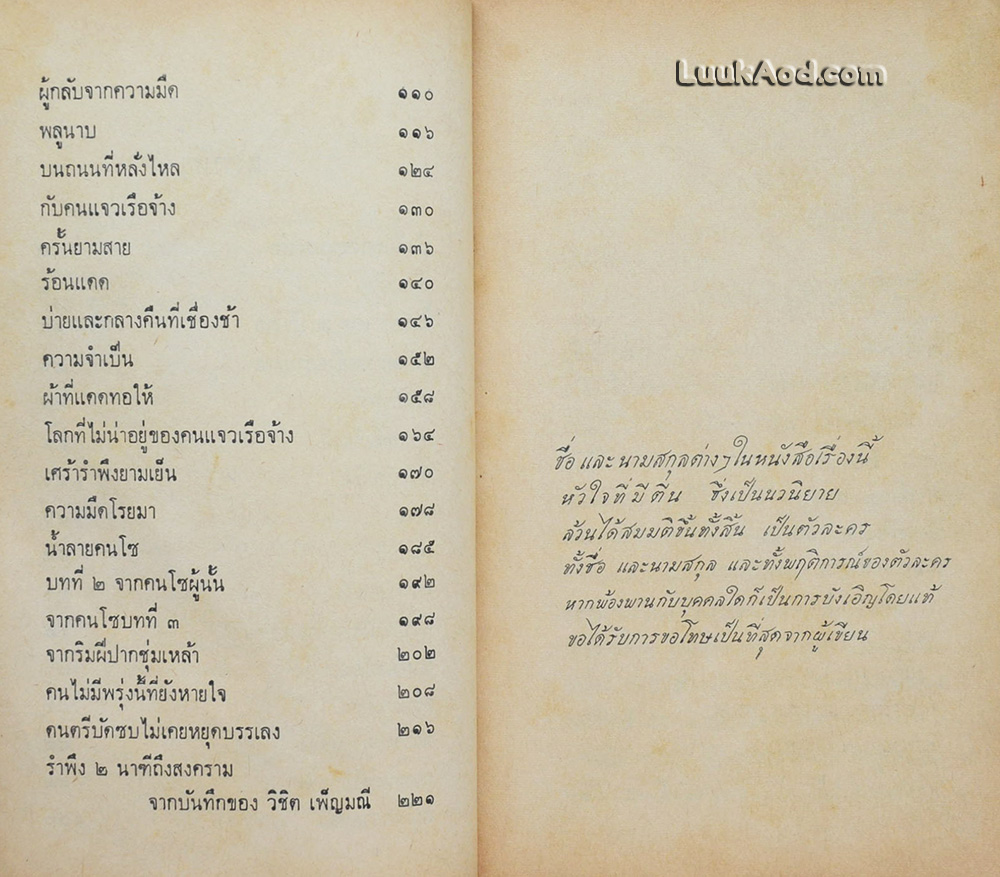 ผู้กลับจากความมืด ๑๑๐
พลูนาบ ๑๑๖
บนถนนที่หลั่งไหล ๑๒๔
กับคนแจวเรือจ้าง ๑๓๐
ครั้นยามสาย ๑๓๖
ร้อนแดด ๑๔๐
บ่ายและกลางคืนที่เชื่องช้า ๑๔๖
ความจำเป็น ๑๕๒
ผ้าที่แดดทอให้ ๑๕๘
โลกที่ไม่น่าอยู่ของคนแจวเรือจ้าง ๑๖๔
เศร้ารำพึงยามเย็น ๑๗๐
ความมืดโรยมา ๑๗๘
น้ำลายคนโซ ๑๘๕
บทที่ ๒ จากคนโซผู้นั้น ๑๙๒
จากคนโซบทที่ ๓ ๑๙๘
จากริมฝีปากชุ่มเหล้า ๒๐๒
คนไม่มีพรุ่งนี้ที่ยังหายใจ ๒๐๘
ดนตรีบัดซบไม่เคยหยุดบรรเลง ๒๑๖
รำพึง ๒ นาฑีถึงสงคราม
จากบันทึกของ วิชิต เพ็ญมณี ๒๒๑
LuukAod.com
ชื่อ และนามสกุลต่างๆในหนังสือเรื่องนี้
หัวใจที่มีตีน ซึ่งเป็นนวนิยาย
ล้วนได้สมมติขึ้นทั้งสิ้น เป็นตัวละคร
ทั้งชื่อ และนามสกุล และทั้งพฤติการณ์ของตัวละคร
หากพ้องพานกับบุคคลใดก็เป็นการบังเอิญโดยแท้
ขอได้รับการขอโทษเป็นที่สุดจากผู้เขียน